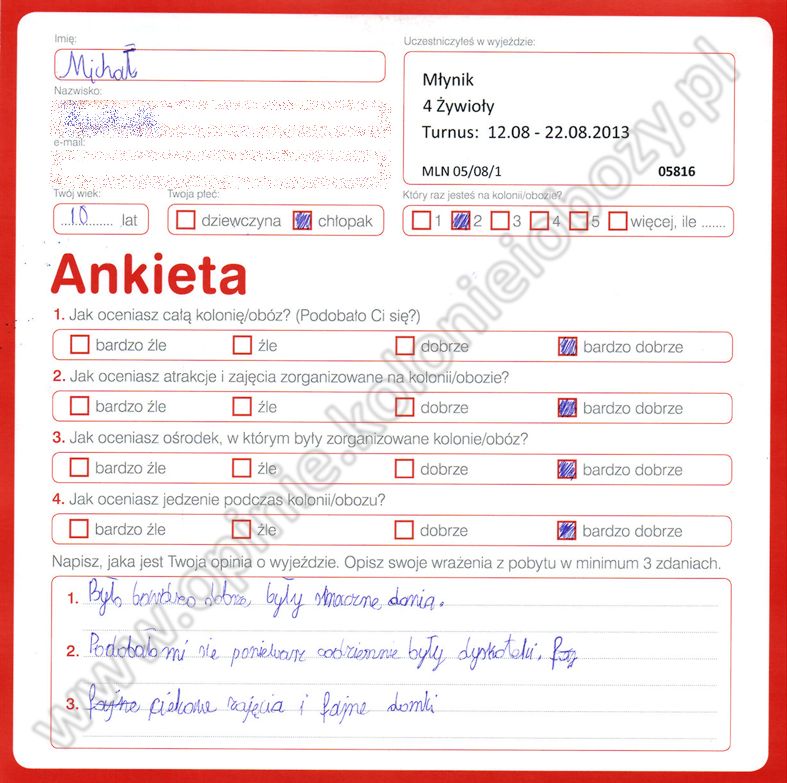 Imię:
Michał
Nazwisko:
e-mail:
Twój wiek:
10 lat
Twoja płeć:
dziewczyna chłopak
Uczestniczyłeś w wyjeździe:
Młynik
4 Żywioły
Turnus: 12.08 - 22.08.2013
MLN 05/08/1 05816
Który raz jesteś na kolonii/obozie?
1 2 3 4 5 więcej, ile .......
Ankieta
1. Jak oceniasz całą kolonię/obóz? (Podobało Ci się?)
bardzo źle źle dobrze bardzo dobrze
2. Jak oceniasz atrakcje i zajęcia zorganizowane na kolonii/obozie?
bardzo źle źle dobrze bardzo dobrze
3. Jak oceniasz ośrodek, w którym były zorganizowane kolonie/obóz?
bardzo źle źle dobrze bardzo dobrze
4. Jak oceniasz jedzenie podczas kolonii/obozu?
bardzo źle źle dobrze bardzo dobrze
Napisz, jaka jest Twoja opinia o wyjeździe. Opisz swoje wrażenia z pobytu w minimum 3 zdaniach.
1. Było bardzo dobrze, były smaczne dania.
2. Podobało mi sie poniewarz codziennie były dyskoteki.
3. fajne ciekawe zajęcia i fajne domki
www.opinie.kolonieiobozy.pl